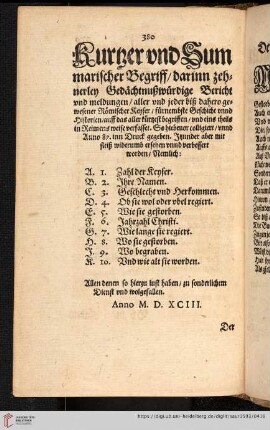 380
Kurtzer vnd Sum
marischer Begriff / darinn zeh-
nerley Gedächtnußwürdige Bericht
vnd meldungen / aller vnd jeder biß dahero ge-
wesener Römischer Keyser / fürnembste Geschicht vnnd
Historien / auff das aller kürtzst begriffen / vnd eins theils
in Reimens weise verfasset. So hiebeuor colligiert / vnnd
Anno 87. inn Druck gegeben. Jtzunder aber mit
fleiß widerumb ersehen vnnd verbessert
worden / Nemlich:
A. 1. Zahl der Keyser.
B. 2. Jhre Namen.
C. 3. Geschlecht vnd Herkommen.
D. 4. Ob sie wol oder vbel regiert.
E. 5. Wie sie gestorben.
F. 6. Jahrzahl Christi.
G. 7. Wie lange sie regiert.
H. 8. Wo sie gestorben.
J. 9. Wo begraben.
K. 10. Vnd wie alt sie worden.
Allen denen so hierzu lust haben / zu sonderlichem
Dienst vnd wolgefallen.
Anno M. D. XCIII.
Der